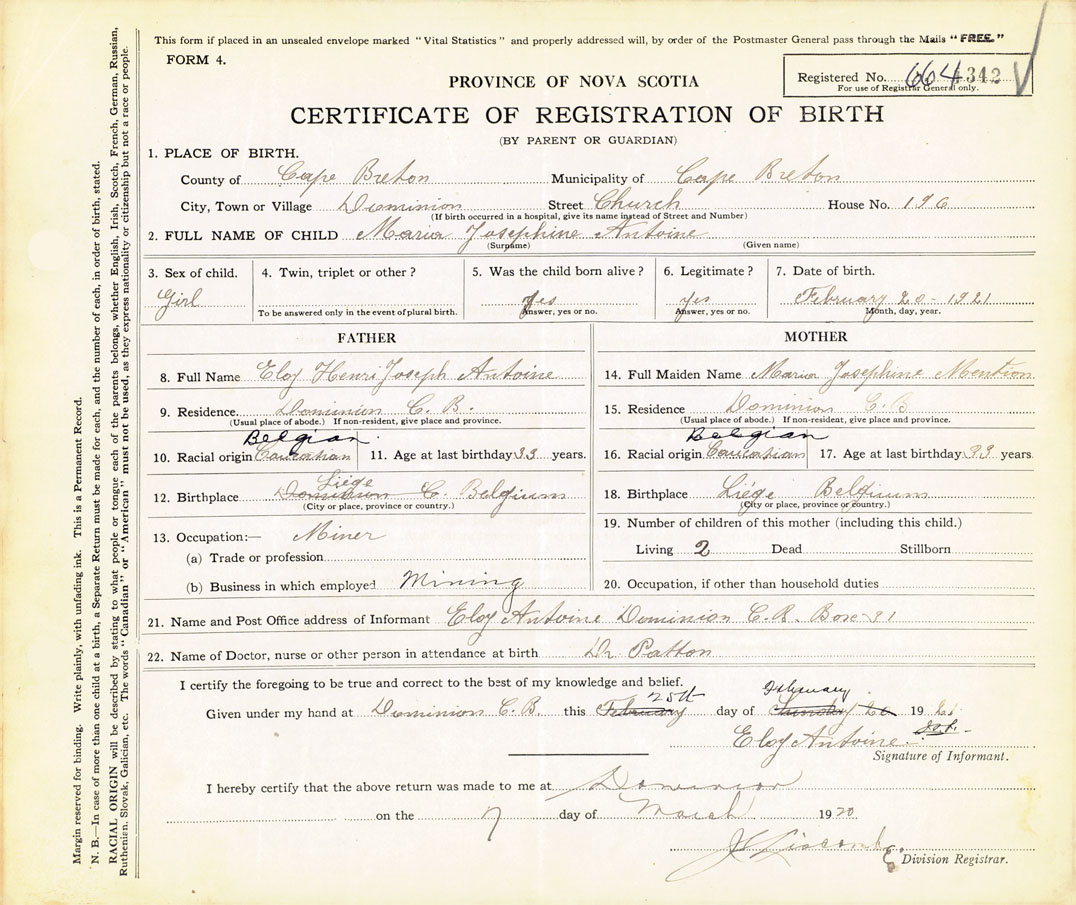 This form if placed in an unsealed envelope marked "Vital Statistics" and properly addressed will, by order of the Postmaster General pass through the Mails "FREE."
FORM 4.
Registered No. 664 342
For use of Registrar General only.
PROVINCE OF NOVA SCOTIA
CERTIFICATE OF REGISTRATION OF BIRTH
(BY PARENT OR GUARDIAN)
1. PLACE OF BIRTH.
County of Cape Breton Municipality of Cape Breton
City, Town or Village Dominion Street Church House No. 196
(If birth occurred in a hospital, give its name instead of Street and Number)
2. FULL NAME OF CHILD Maria Josephine Antoine
(Surname) (Given name)
3. Sex of child. 4. Twin, triplet or other? 5. Was the child born alive? 6. Legitimate? 7. Date of birth.
Girl Yes Yes February 20 - 1921
To be answered only in the event of plural birth. Answer, yes or no. Answer, yes or no. Month, day, year.
FATHER MOTHER
8. Full Name Eloy Henri Joseph Antoine 14. Full Maiden Name Maria Josephine Mention
9. Residence. Dominion C. B. 15. Residence Dominion C B
(Usual place of abode.) If non-resident, give place and province. (Usual place of abode.) If non-resident, give place and province.
Belgian Belgian
10. Racial origin Caucasian 11. Age at last birthday 33 years. 16. Racial origin Caucasian 17. Age at last birthday 33 years
Liége
12. Birthplace Dominion C. Belgium 18. Birthplace Liége Belgium
(City or place, province or country.) (City or place, province or country.)
19. Number of children of this mother (including this child.)
13. Occupation:— Miner
Living 2 Dead Stillborn
(a) Trade or profession
(b) Business in which employed Mining 20. Occupation, if other than household duties
21. Name and Post Office address of Informant Eloy Antoine Dominion C. B. Box 91
22. Name of Doctor, nurse or other person in attendance at birth Dr Patton
I certify the foregoing to be true and correct to the best of my knowledge and belief.
25th February
Given under my hand at Dominion C. B. this February day of 20 19 21
Eloy Antoine
Signature of Informant.
I hereby certify that the above return was made to me at Dominion
on the 7 day of March 1920
J Liscomb
Division Registrar.
Margin reserved for binding. Write plainly, with unfading ink. This is a Permanent Record.
N. B.—In case of more than one child at a birth, a Separate Return must be made for each, and the number of each, in order of birth, stated.
RACIAL ORIGIN will be described by stating to what people or tongue each of the parents belongs, whether English, Irish, Scotch, French, German, Russian,
Ruthenian, Slovak, Galician, etc. The words "Canadian" or "American" must not be used, as they express nationality or citizenship but not a race or people.